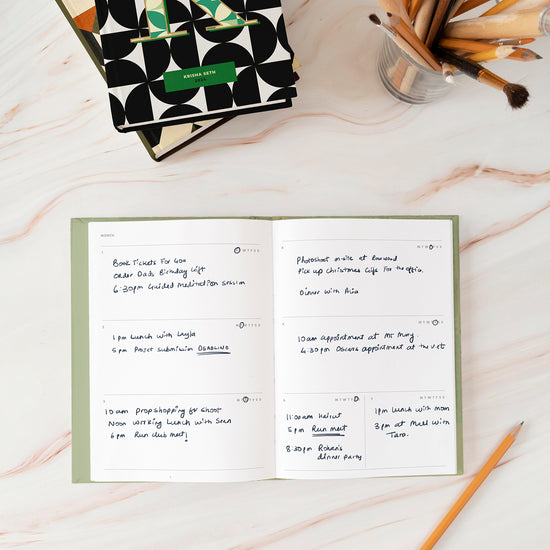 K
KRISHA SETH
MONTH
1
Book Tickets For Goa
Order Dads Birthday Gift
6:30pm Guided Meditation Session
2
1pm Lunch with Layla
5pm Project Submission DEADLINE
3
10am Prop shopping for shoot
Noon Working Lunch with Sean
6pm Run club meet!
4
Photoshoot on-site at
Pick up Christmas Gifts For the office.
Dinner with Mia
5
10am appointment at
4:30pm Oscars appointment at the vet
6
11:00am Haircut
5pm Run meet
8:30pm Rohan's
dinner party
7
1pm Lunch with mom
3pm at Mall with
Tara.